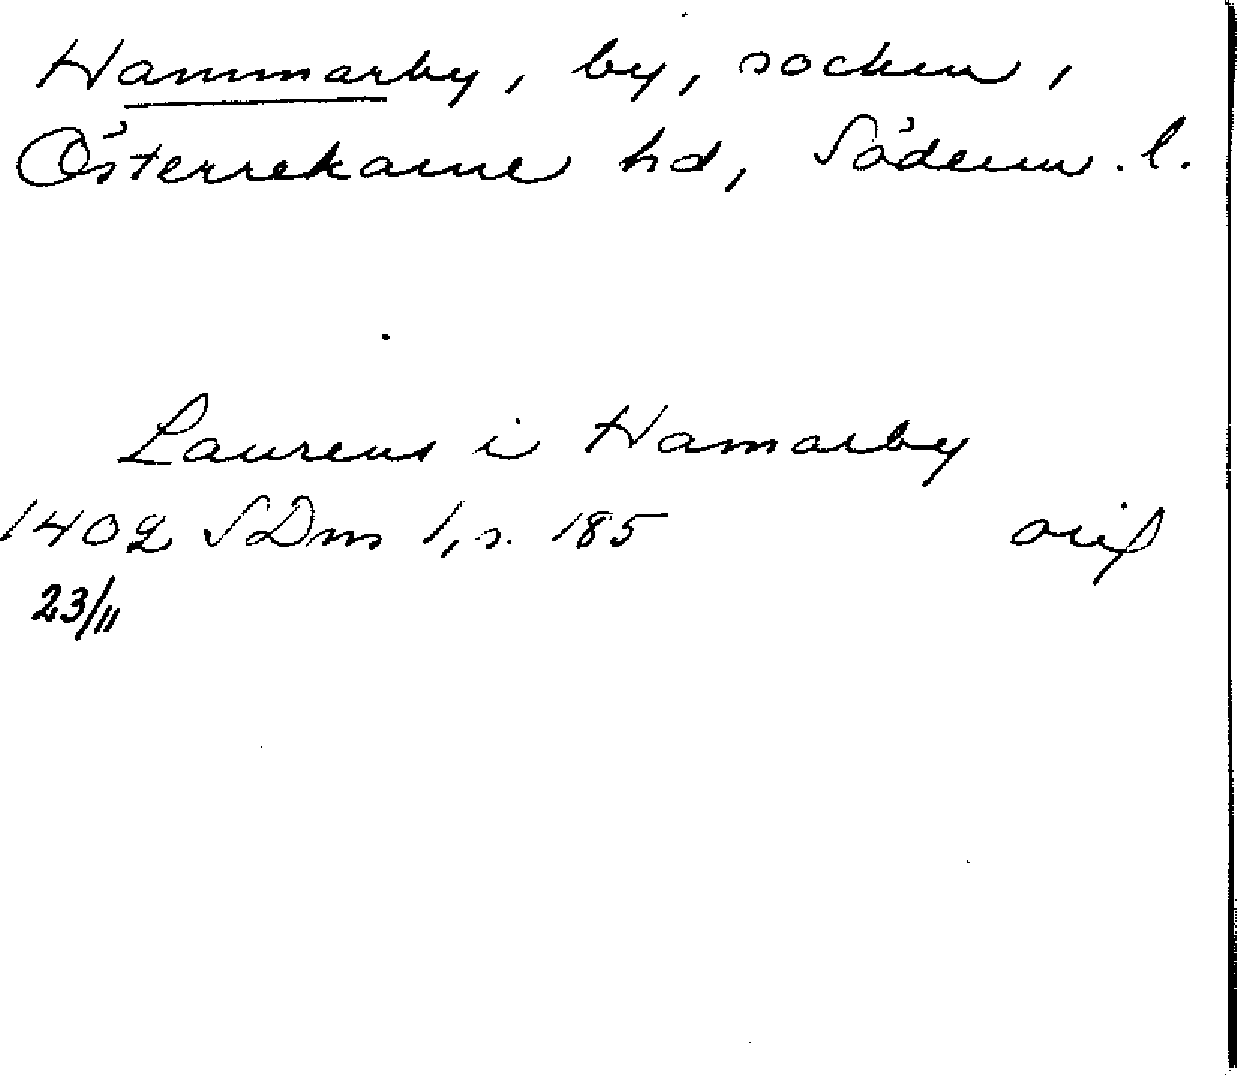 Hammarby, by, socken,
Österrekarne hd, Söderm. l.
Laurens i Hamarby
1402 SDns 1, s. 185 orig
23/11